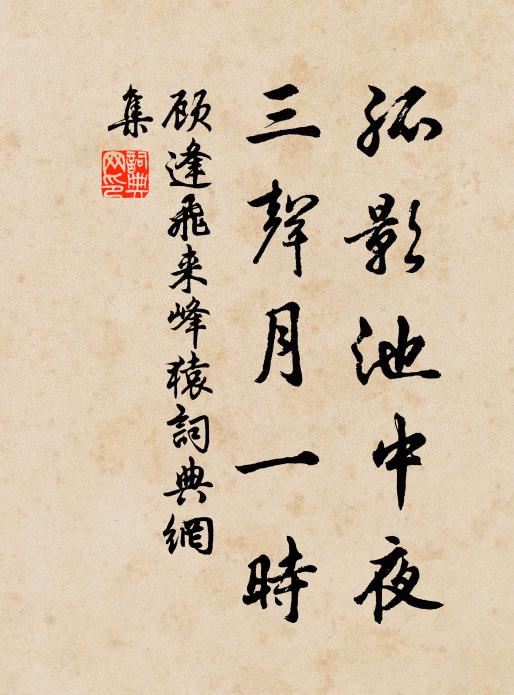 孤影池中夜
三聲月一時
顾逢飛来峰猿詞典網
集
詞典
网印